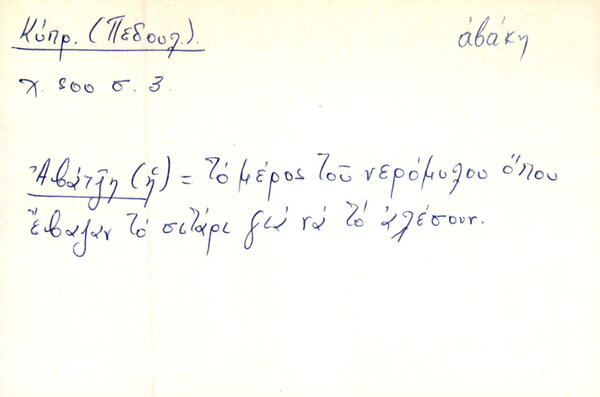 Κύπρ. (Πεδουλ.).
ἀβάκη
χ. 900 σ. 3.
Ἀβάτζη (ἡ) = τό μέρος τοῦ νερόμυλου ὅπου
ἔβαζαν τό σιτάρι γιά νά τό ἀλέσουν.